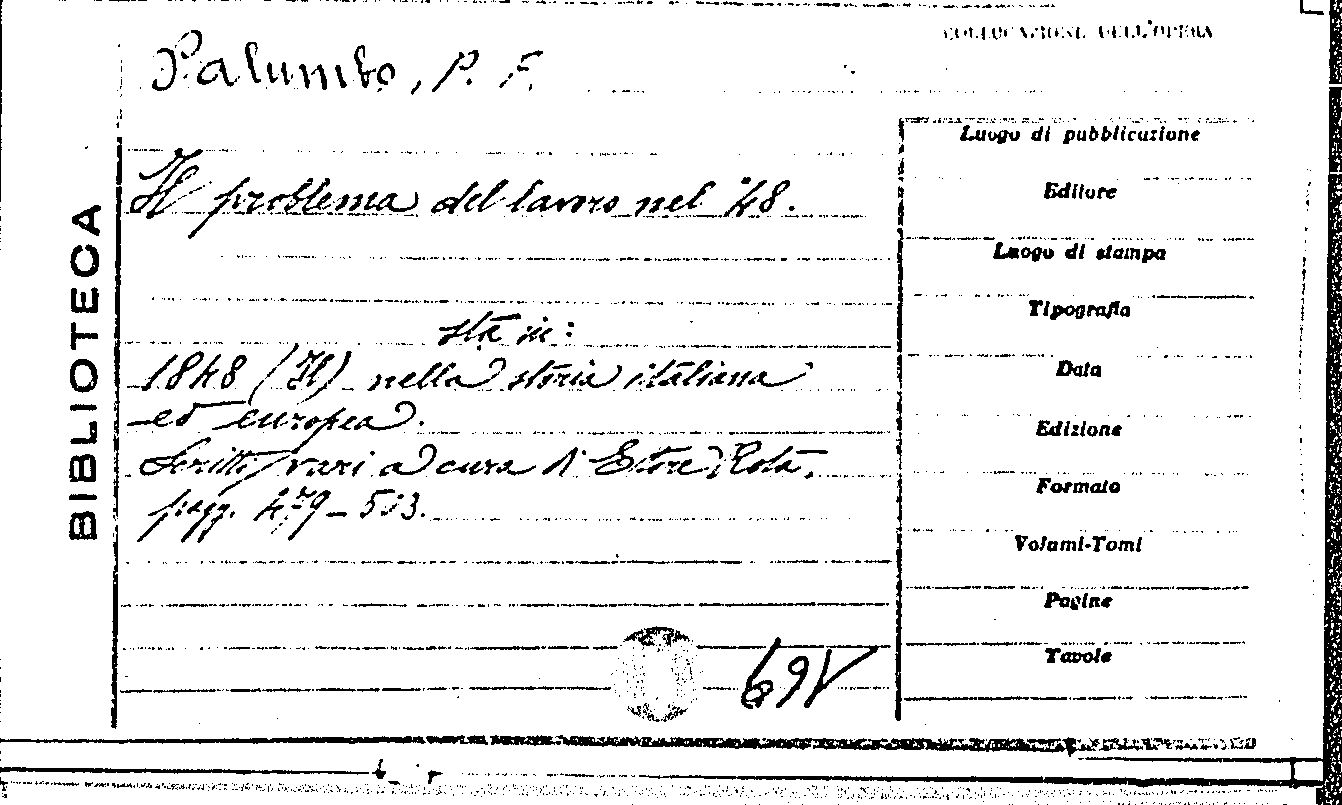 COLLOCAZIONE DELL'OPERA
Palumbo, P. F.
Il problema del lavoro nel '48.
sta in:
1848 (Il) nella storia italiana
ed europea.
Scritti vari a cura di Ettore Rota,
pagg. 479-503.
BIBLIOTECA
Luogo di pubblicazione
Editore
Luogo di stampa
Tipografia
Data
Edizione
Formato
Volumi-Tomi
Pagine
Tavole